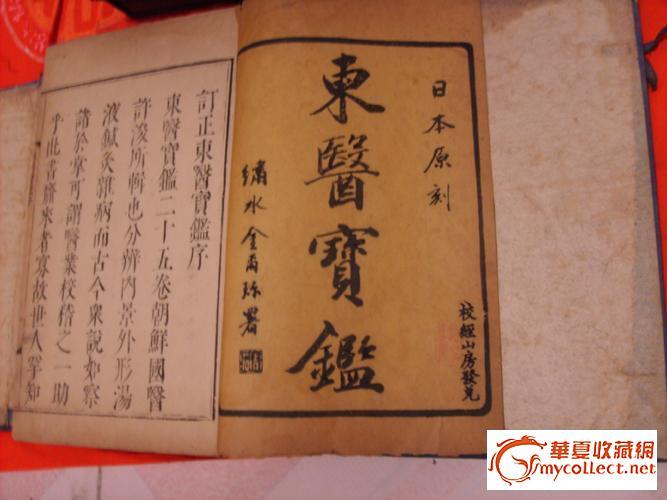 日本原刻
校經山房發兌
東醫寶鑑
繡水金爾珍署
訂正東醫寶鑑序
東醫寶鑑二十五卷朝鮮國醫
許浚所輯也分辨內景外形湯
液鍼灸雜病而古今衆說如察
諸於掌可謂醫業校稽之一助
乎此書齎來者寡故世人罕知
華夏收藏網
mycollect.net